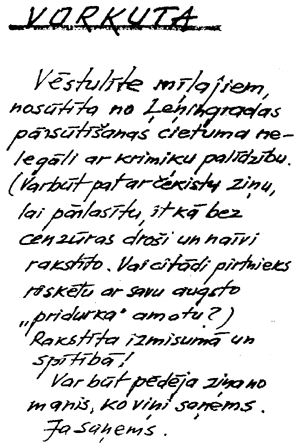 VORKUTA
Vēstulīte mīļajiem,
nosūtīta no Ļeņingradas
pārsūtīšanas cietuma ne-
legāli ar krimiķu palīdzību.
(Varbūt pat ar čekistu ziņu,
lai pārlasītu, it kā bez
cenzūras droši un naīvi
rakstīto. Vai citādi pirtnieks
riskētu ar savu augsto
„pridurka" amatu?)
Rakstīta izmisumā un
spītībā!
Varbūt pēdējā ziņa no
manis, ko viņi saņems.
Ja saņems.